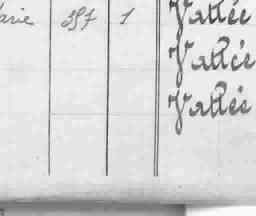 arie 397 1 Vallée
Vallée
Vallée